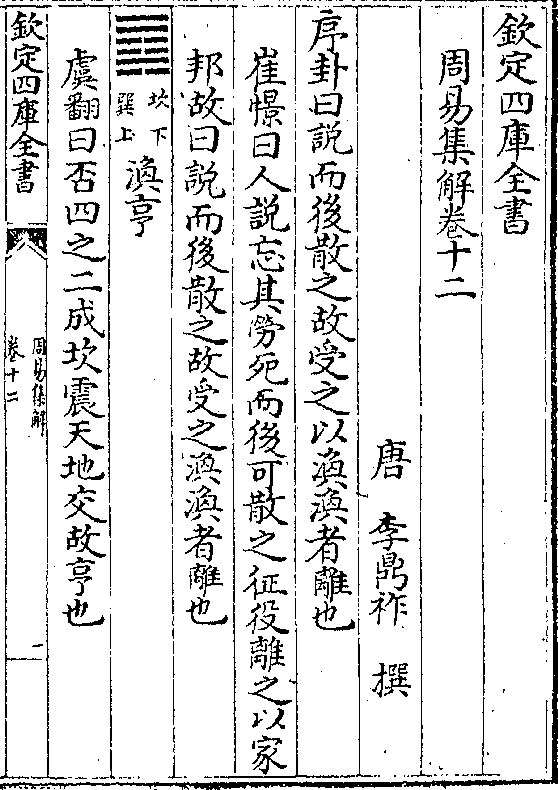 欽定四庫全書
周易集解卷十二
唐 李鼎祚 撰
序卦曰説而後散之故受之以渙渙者離也
崔憬曰人説忘其勞死而後可散之征役離之以家
邦故曰説而後散之故受之渙渙者離也
坎下
巽上
渙亨
虞翻曰否四之二成坎震天地交故亨也
欽定四庫全書
周易集解
卷十二
一